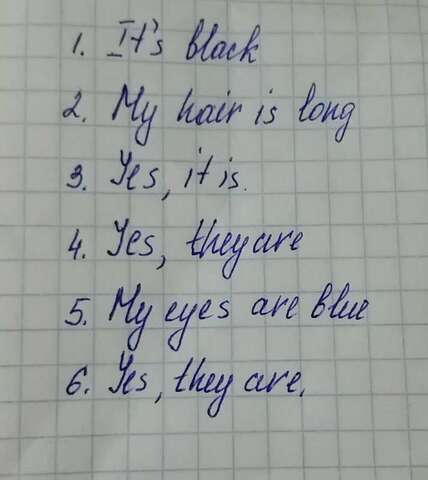 1. It's black
2. My hair is long
3. Yes, it is.
4. Yes, they are
5. My eyes are blue
6. Yes, they are.